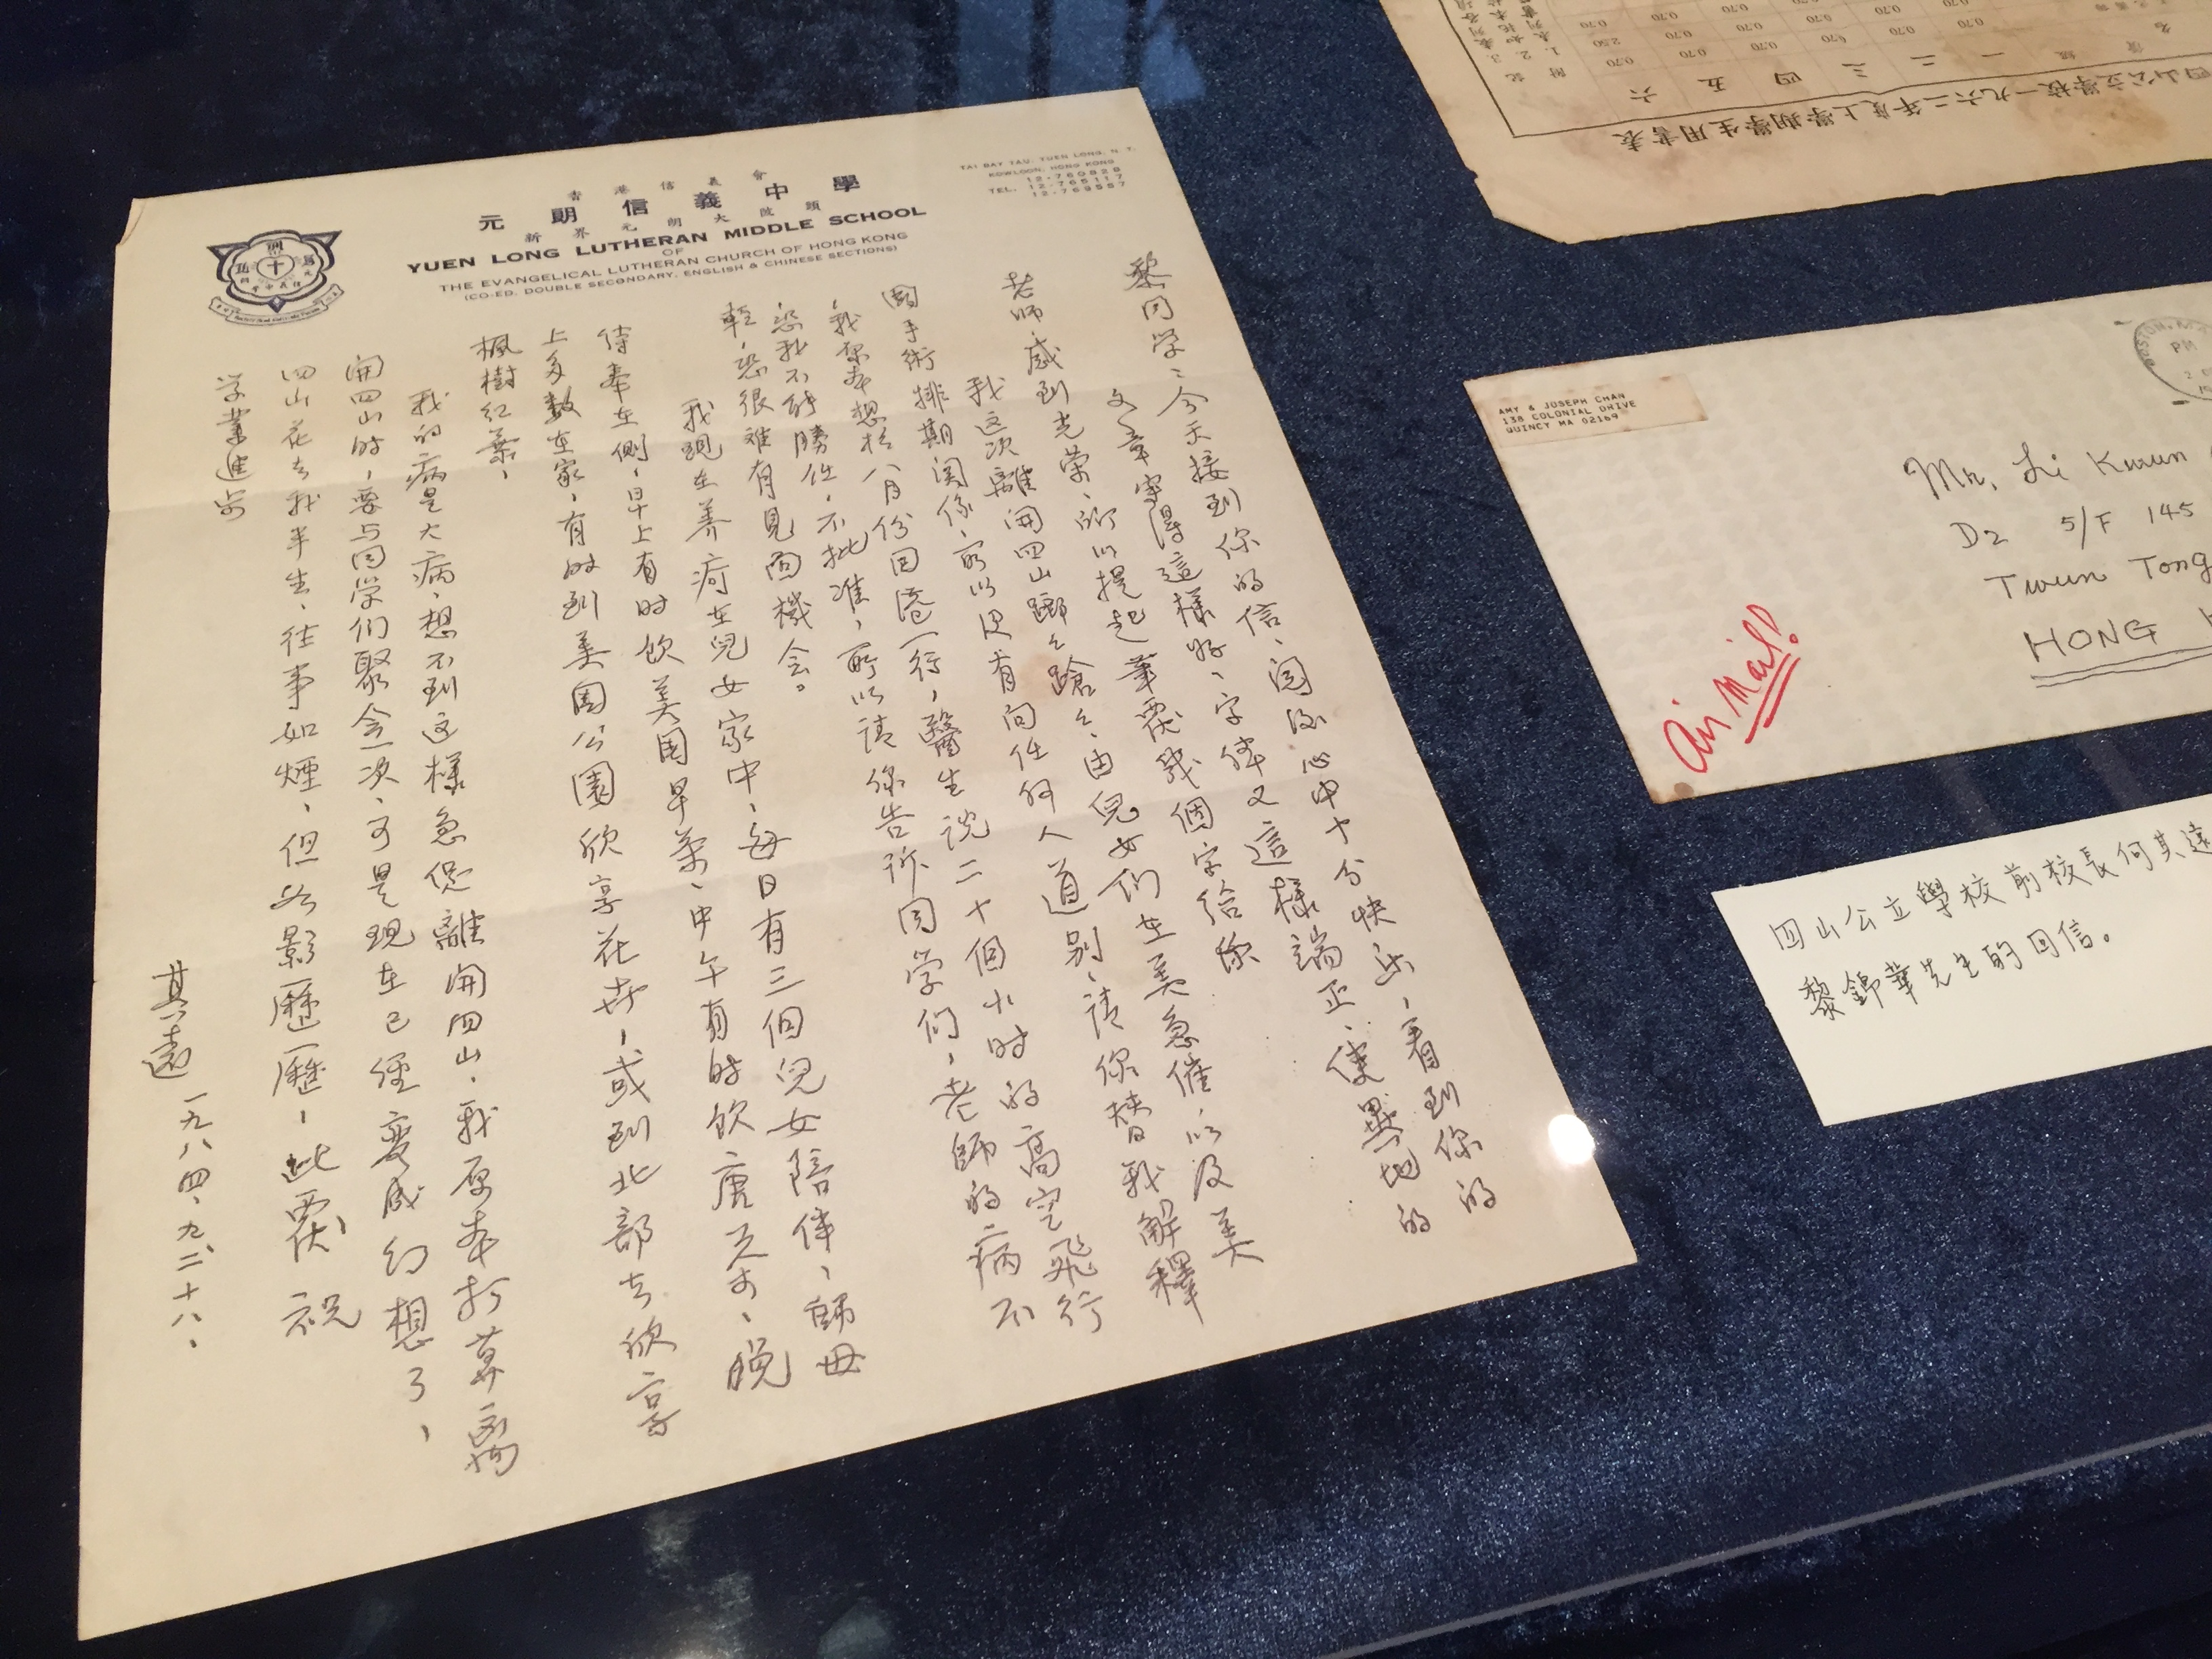 香港信義會
元朗信義中學
新界元朗大旗頭
YUEN LONG LUTHERAN MIDDLE SCHOOL
OF
THE EVANGELICAL LUTHERAN CHURCH OF HONG KONG
(CO-ED. DOUBLE SECONDARY, ENGLISH & CHINESE SECTIONS)
TAI KAY TAU, YUEN LONG, N. T.
KOWLOON, HONG KONG
TEL. 12-760828
12-765117
12-769557
黎同学：今天接到你的信、閱後心中十分快乐，看到你的
文章寫得這樣好、字体又這樣端正、使異地的
老師感到光荣、所以提起筆覆幾個字給你
我這次離開四山踉々蹌々、由兒女们在美急催、以及美
國手術排期関係、所以没有向任何人道别、請你替我解釋
我原本想於八月份回港一行，醫生说二十個小时的高空飛行
恐我不能勝任、不批准，所以請你告訴同学们，老師的病不
輕，恐很难有見面機会。
我現在養疴在兒女家中、每日有三個兒女陪伴、師母
侍奉在側，早上有时飲美国早茶、中午有时飲唐茶、晚
上多数在家，有时到美国公園欣享花卉，或到北部去欣享
楓樹红葉，
我的病是大病、想不到这樣急促離開四山，我原本打算离
開四山时，要与同学们聚会一次、可是現在已經变成幻想了，
四山花去我半生、往事如煙、但必影歷歷，此覆 祝
学業進步
其遠 一九八四、九、二十八、
四山公立學校一九六二年度上學期學生用書表
一 二 三 四 五 六
AMY & JOSEPH CHAN
138 COLONIAL DRIVE
QUINCY MA 02169
PM
Mr. Li Kwun
D2 5/F 145
Twun Tong
HONG
Air Mail!
四山公立學校前校長何其遠
黎錦華先生的回信。